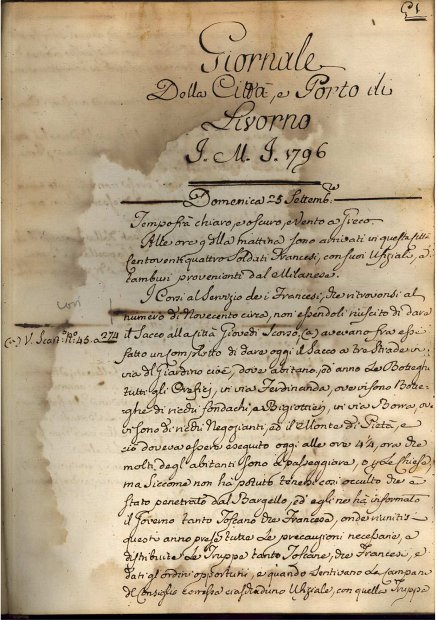 C1
Giornale
Della Città, e Porto di
Livorno
J. M. J. 1796
Domenica 25 Settemb.re
Tempo frà chiaro, e oscuro, e Vento a Greco.
Alle ore 9 della mattina sono arrivati in questa Città
Centoventiquattro Soldati Francesi, con suoi Ufiziale, e
tamburi provenienti dal Milanese.
I Corsi al Servizio de i Francesi, che ritrovonsi al
numero di Novecento circa, non essendoli riuscito di dare
il Sacco alla Città Giovedì Scorso, (a) avevano fra essi
fatto un Complotto di dare oggi il Sacco a tre Strade in
via del Giardino cioè, dove abitano, ed anno Le Botteghe
tutti gli Orefici, in via Ferdinanda, ove vi sono Botte-
ghe di ricchi fondachi, e Bigiottieri, in via Borra, ove
vi sono di ricchi Negozianti, ed il Monte di Pietà, e
ciò doveva essere eseguito oggi alle ore 4 1/4, ora che
molti degl'abitanti sono a passeggiare, o per Le Chiese,
ma Siccome non ha potuto tenersi così occulto che è
stato penetrato dal Bargello, ed egli ne hà informato
il Governo tanto Toscano che Francese, onde riunitisi
questi anno prese tutte Le precauzioni necessarie, a
distribuite Le Truppe tanto Toscane, che Francesi, e
dati gl'ordini opportuni, e quando sentivano La campana
del Consiglio corresse ciascheduno Ufiziale, con quella Truppa
(a) V. Scart. N.o 45. a 274
così